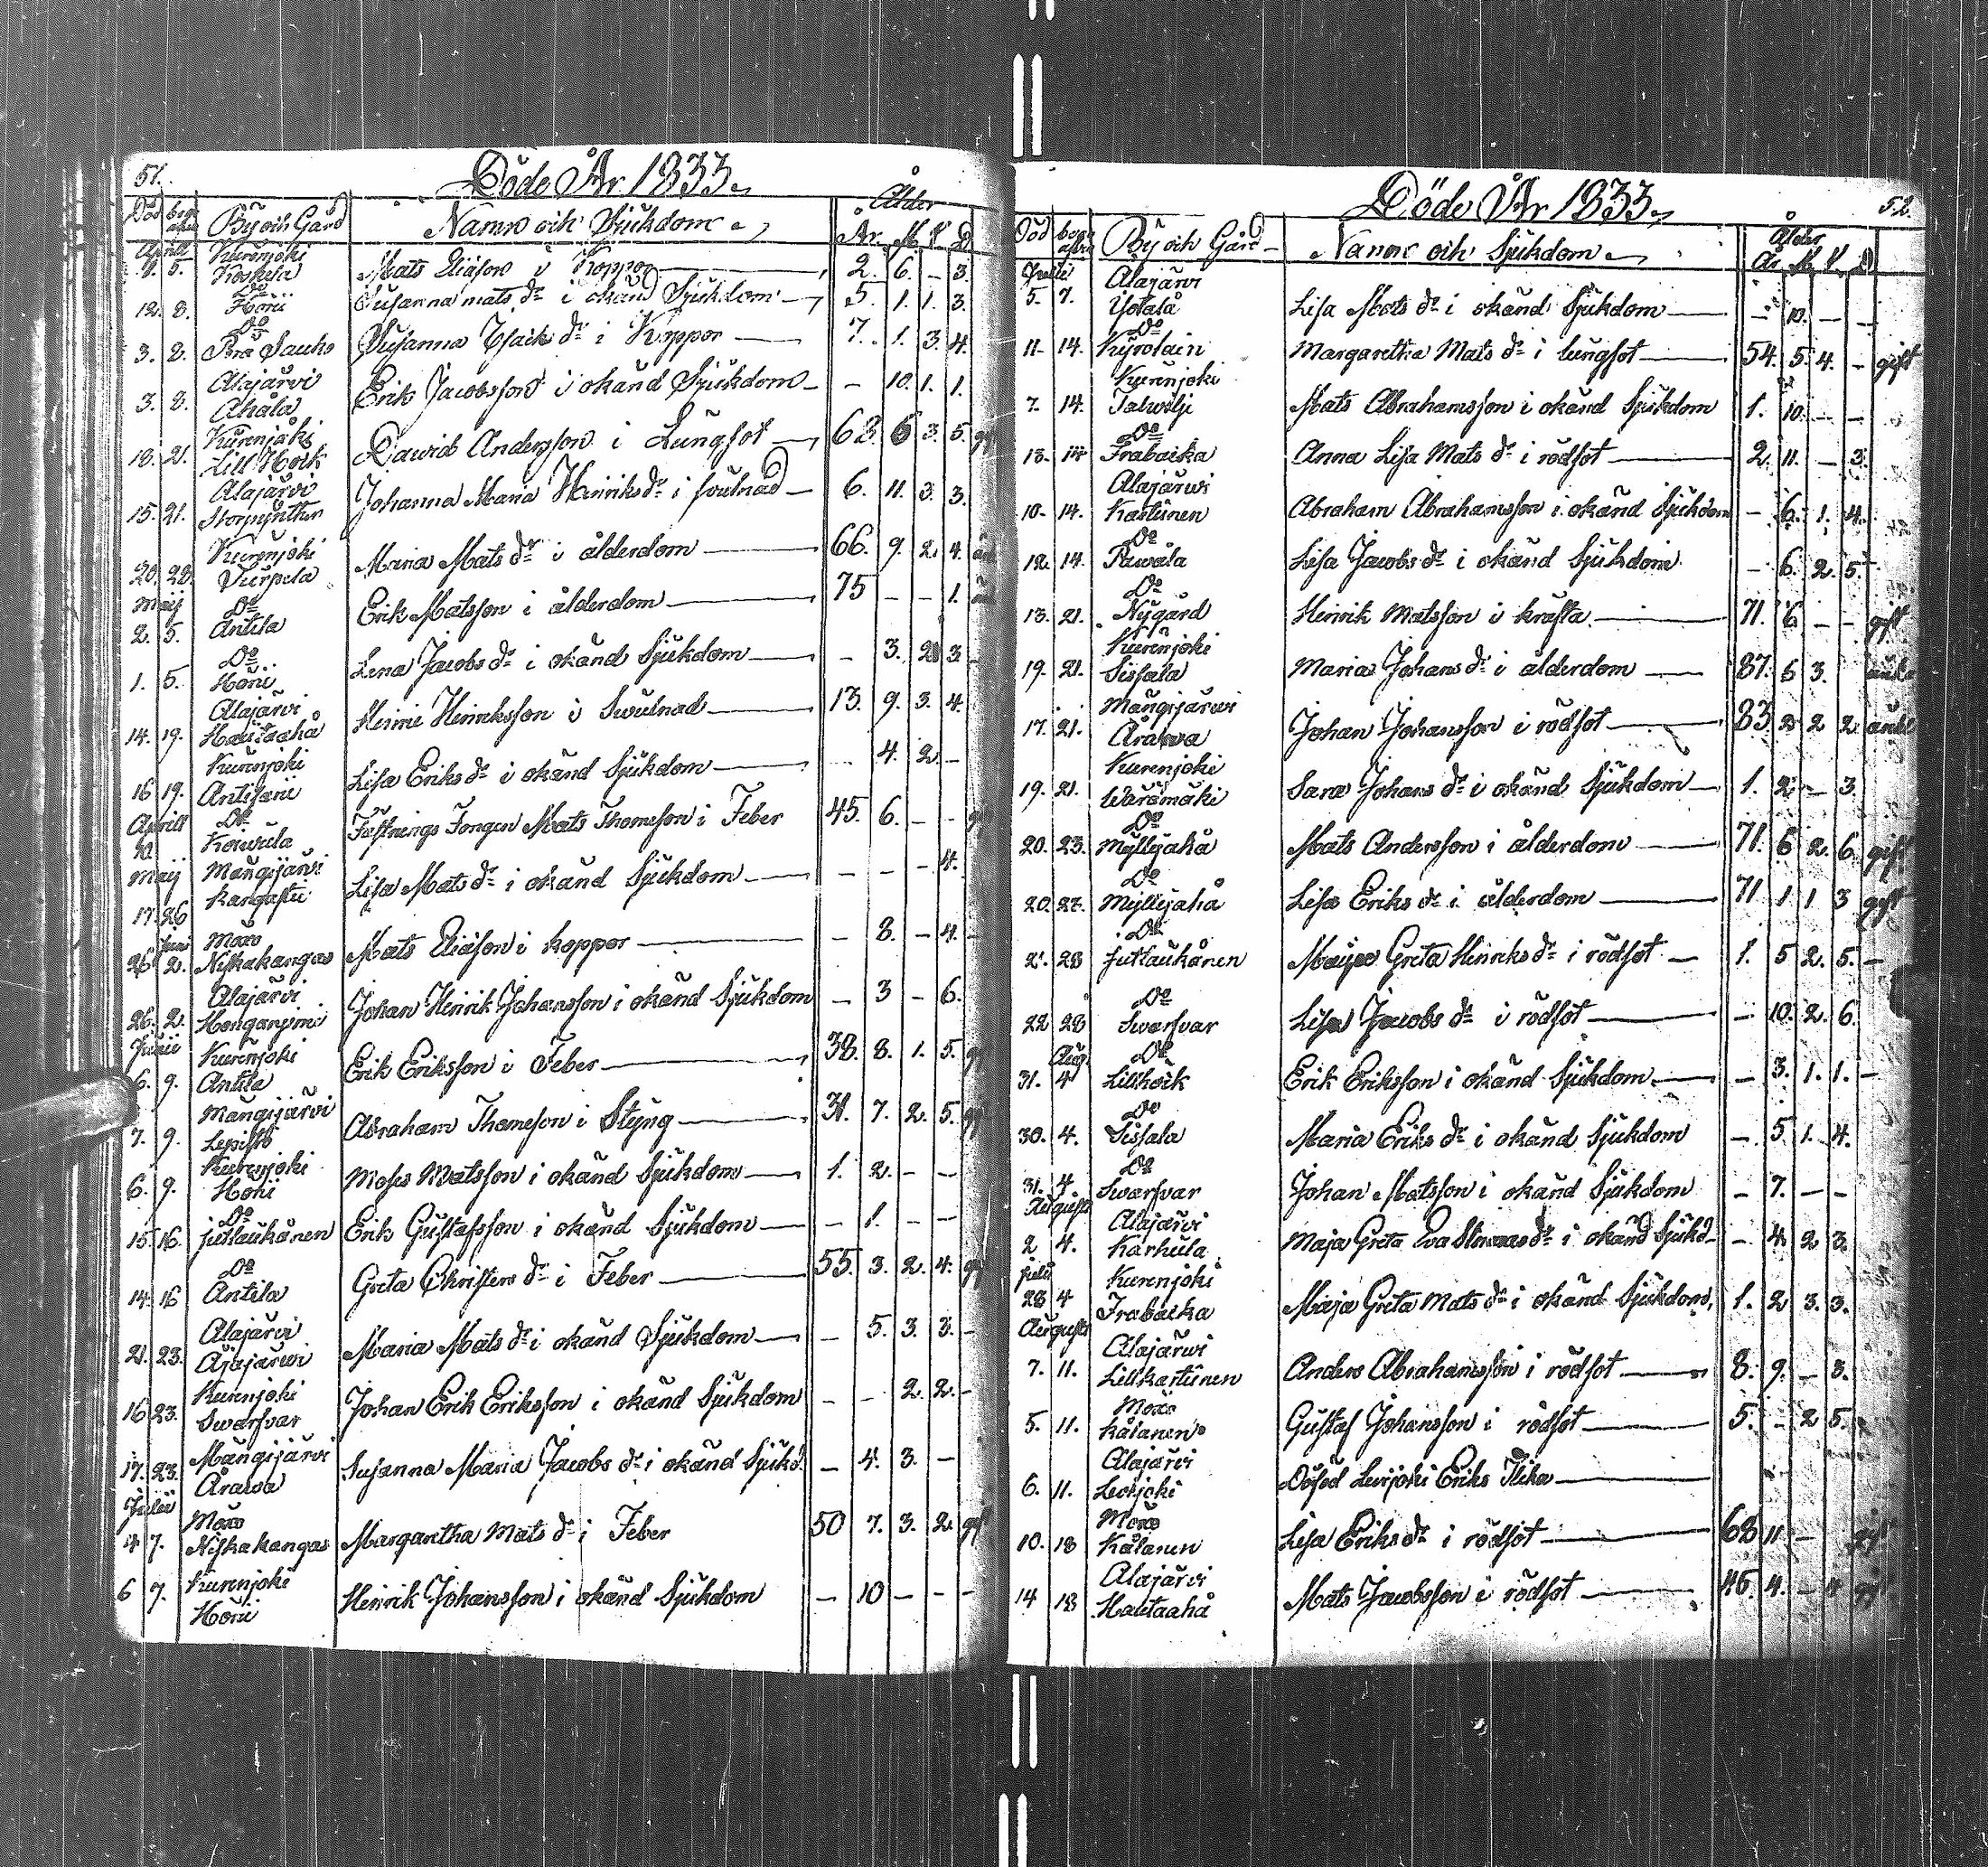 51.
Döde År 1833.
Död begr. By och Gård Namn och Sjukdom Ålder År. M. V. D.
Aprill Kurenjoki
1. 5. Koskela Mats Eliasson i Koppor 2. 6. – 3.
Do
12. 8. Höni Susanna mats dr i okänd Sjukdom 5. 1. 1. 3.
Do
3. 8. Perä Sauko Susanna Isacks dr i Koppor 7. 1. 3. 4.
Alajärvi
3. 8. Ahåla Erik Jacobsson i okänd Sjukdom – 10. 1. 1.
Kurenjåki
18. 21. Lill Hoik David Andersson i Lungsot 62. 6 3. 5.
Alajärvi
15. 21. Storpynthen Johanna Maria Henriks dr i svulnad 6. 11. 3. 3.
Kurenjoki
20. 28. Vurpela Maria Mats dr i ålderdom 66. 9. 2. 4.
Maij Do
2. 5. Antila Erik Matsson i ålderdom 75 – – 1.
Do
1. 5. Höni Lena Jacobs dr i okänd Sjukdom – 3. 2 3. –
Alajärvi
14. 19. Hautaahå Henric Henriksson i Swulnad 13. 9. 3. 4.
Kurenjoki
16 19. Antisari Lisa Eriks dr i okänd Sjukdom – 4. 2. –
Aprill Do
Koiwula Fästnings Fongen Mats Thomsson i Feber 45. 6. – –
Maij Mängijärvi
17. 26 Kangastie Lisa Mats dr i okänd Sjukdom – – – 4.
Juni Möxo
26 2. Niskakangas Mats Eliasson i koppor – 8. – 4. –
Alajärvi
26. 2. Honganpini Johan Henrik Johansson i okänd Sjukdom – 3 – 6.
Junii Kurenjoki
6. 9. Antila Erik Eriksson i Feber 38. 8. 1. 5.
Mängijärvi
7. 9. Lepistö Abraham Thomsson i Styng 31. 7. 2. 5.
Kurenjoki
6. 9. Höni Moses Matsson i okänd Sjukdom 1. 2. – –
Do
15. 16. Jutlaukånen Erik Gustafsson i okänd Sjukdom – 1. – –
Do
14. 16 Antila Greta Christers dr i Feber 55. 3. 2. 4.
Alajärvi
21. 23. Ajajärwi Maria Mats dr i okänd Sjukdom – 5. 3. 3. –
Kurenjoki
16 23. Swarfvar Johan Erik Eriksson i okänd Sjukdom – – 2. 2. –
Mängijärvi
17. 23. Årawa Susanna Maria Jacobs dr i okänd Sjukd. – 4. 3. –
Julii Möxo
4 7. Niskakangas Margaretha Mats dr i Feber 50 7. 3. 2.
Kurenjoki
6 7. Höni Henrik Johansson i okänd Sjukdom – 10 – – –
52.
Döde År 1833.
Död begr. By och Gård Namn och Sjukdom Ålder År M. V. D
Julii Alajärvi
5. 7. Yotalå Lisa Mats dr i okänd Sjukdom – 10. – –
Do
11. 14. Kyrölain Margaretha Mats dr i lungsot 54. 5. 4. – gift
Kurenjoki
7. 14. Talwilji Mats Abrahamsson i okänd Sjukdom 1. 10. – –
Do
13. 14 Frabacka Anna Lisa Mats dr i rödsot 2. 11. – 3.
Alajärwi
10. 14. Kastunen Abraham Abrahamsson i okänd Sjukdom – 6. 1. 4.
Do
12. 14. Pawåla Lisa Jacobs dr i okänd Sjukdom – 6. 2. 5.
Do
13. 21. Nygård Henrik Matsson i kräfta 71. 6 – – gift
Kurenjoki
19. 21. Sissala Maria Johans dr i ålderdom 87. 6 3. änka
Mängijärwi
17. 21. Årawa Johan Johansson i rödsot 83 2 2 2 änkl
Kurenjoki
19. 21. Waramäki Sara Johans dr i okänd Sjukdom 1. 2. – 3.
Do
20. 23. Myllyahå Mats Andersson i ålderdom 71. 6 2. 6 gift
Do
20. 27. Myllyahå Lisa Eriks dr i ålderdom 71 1 1 3 gift
Do
21. 28 Jutlaukånen Maija Greta Henriks dr i rödsot 1. 5 2. 5. –
Do
22 28 Swarfvar Lisa Jacobs dr i rödsot – 10. 2. 6.
Aug. Do
31. 4 Lillhoik Erik Eriksson i okänd Sjukdom – 3. 1. 1. –
Do
30. 4. Sissala Maria Eriks dr i okänd Sjukdom – 5. 1. 4.
Do
31. 4. Swarfvar Johan Matsson i okänd Sjukdom – 7. – –
Augusti Alajärvi
2 4. Karhula Maja Greta Eva dr i okänd Sjukd – 4. 2 3.
Julii Kurenjoki
28 4 Frabacka Maja Greta Mats dr i okänd Sjukdom, 1. 2 3. 3.
Augusti Alajärwi
7. 11. Lillkastunen Anders Abrahamsson i rödsot 8. 9. – 3.
Möxo
5. 11. Kålanen Gustaf Johansson i rödsot 5. – 2 5.
Alajärvi
6. 11. Levijoki Dösöd Levijoki Eriks Flika
Möxo
10. 18 Kålanen Lisa Eriks dr i rödsot 68 11 – gift
Alajärvi
14 18 Hautaahå Mats Jacobsson i rödsot 46. 4. – 4 gift